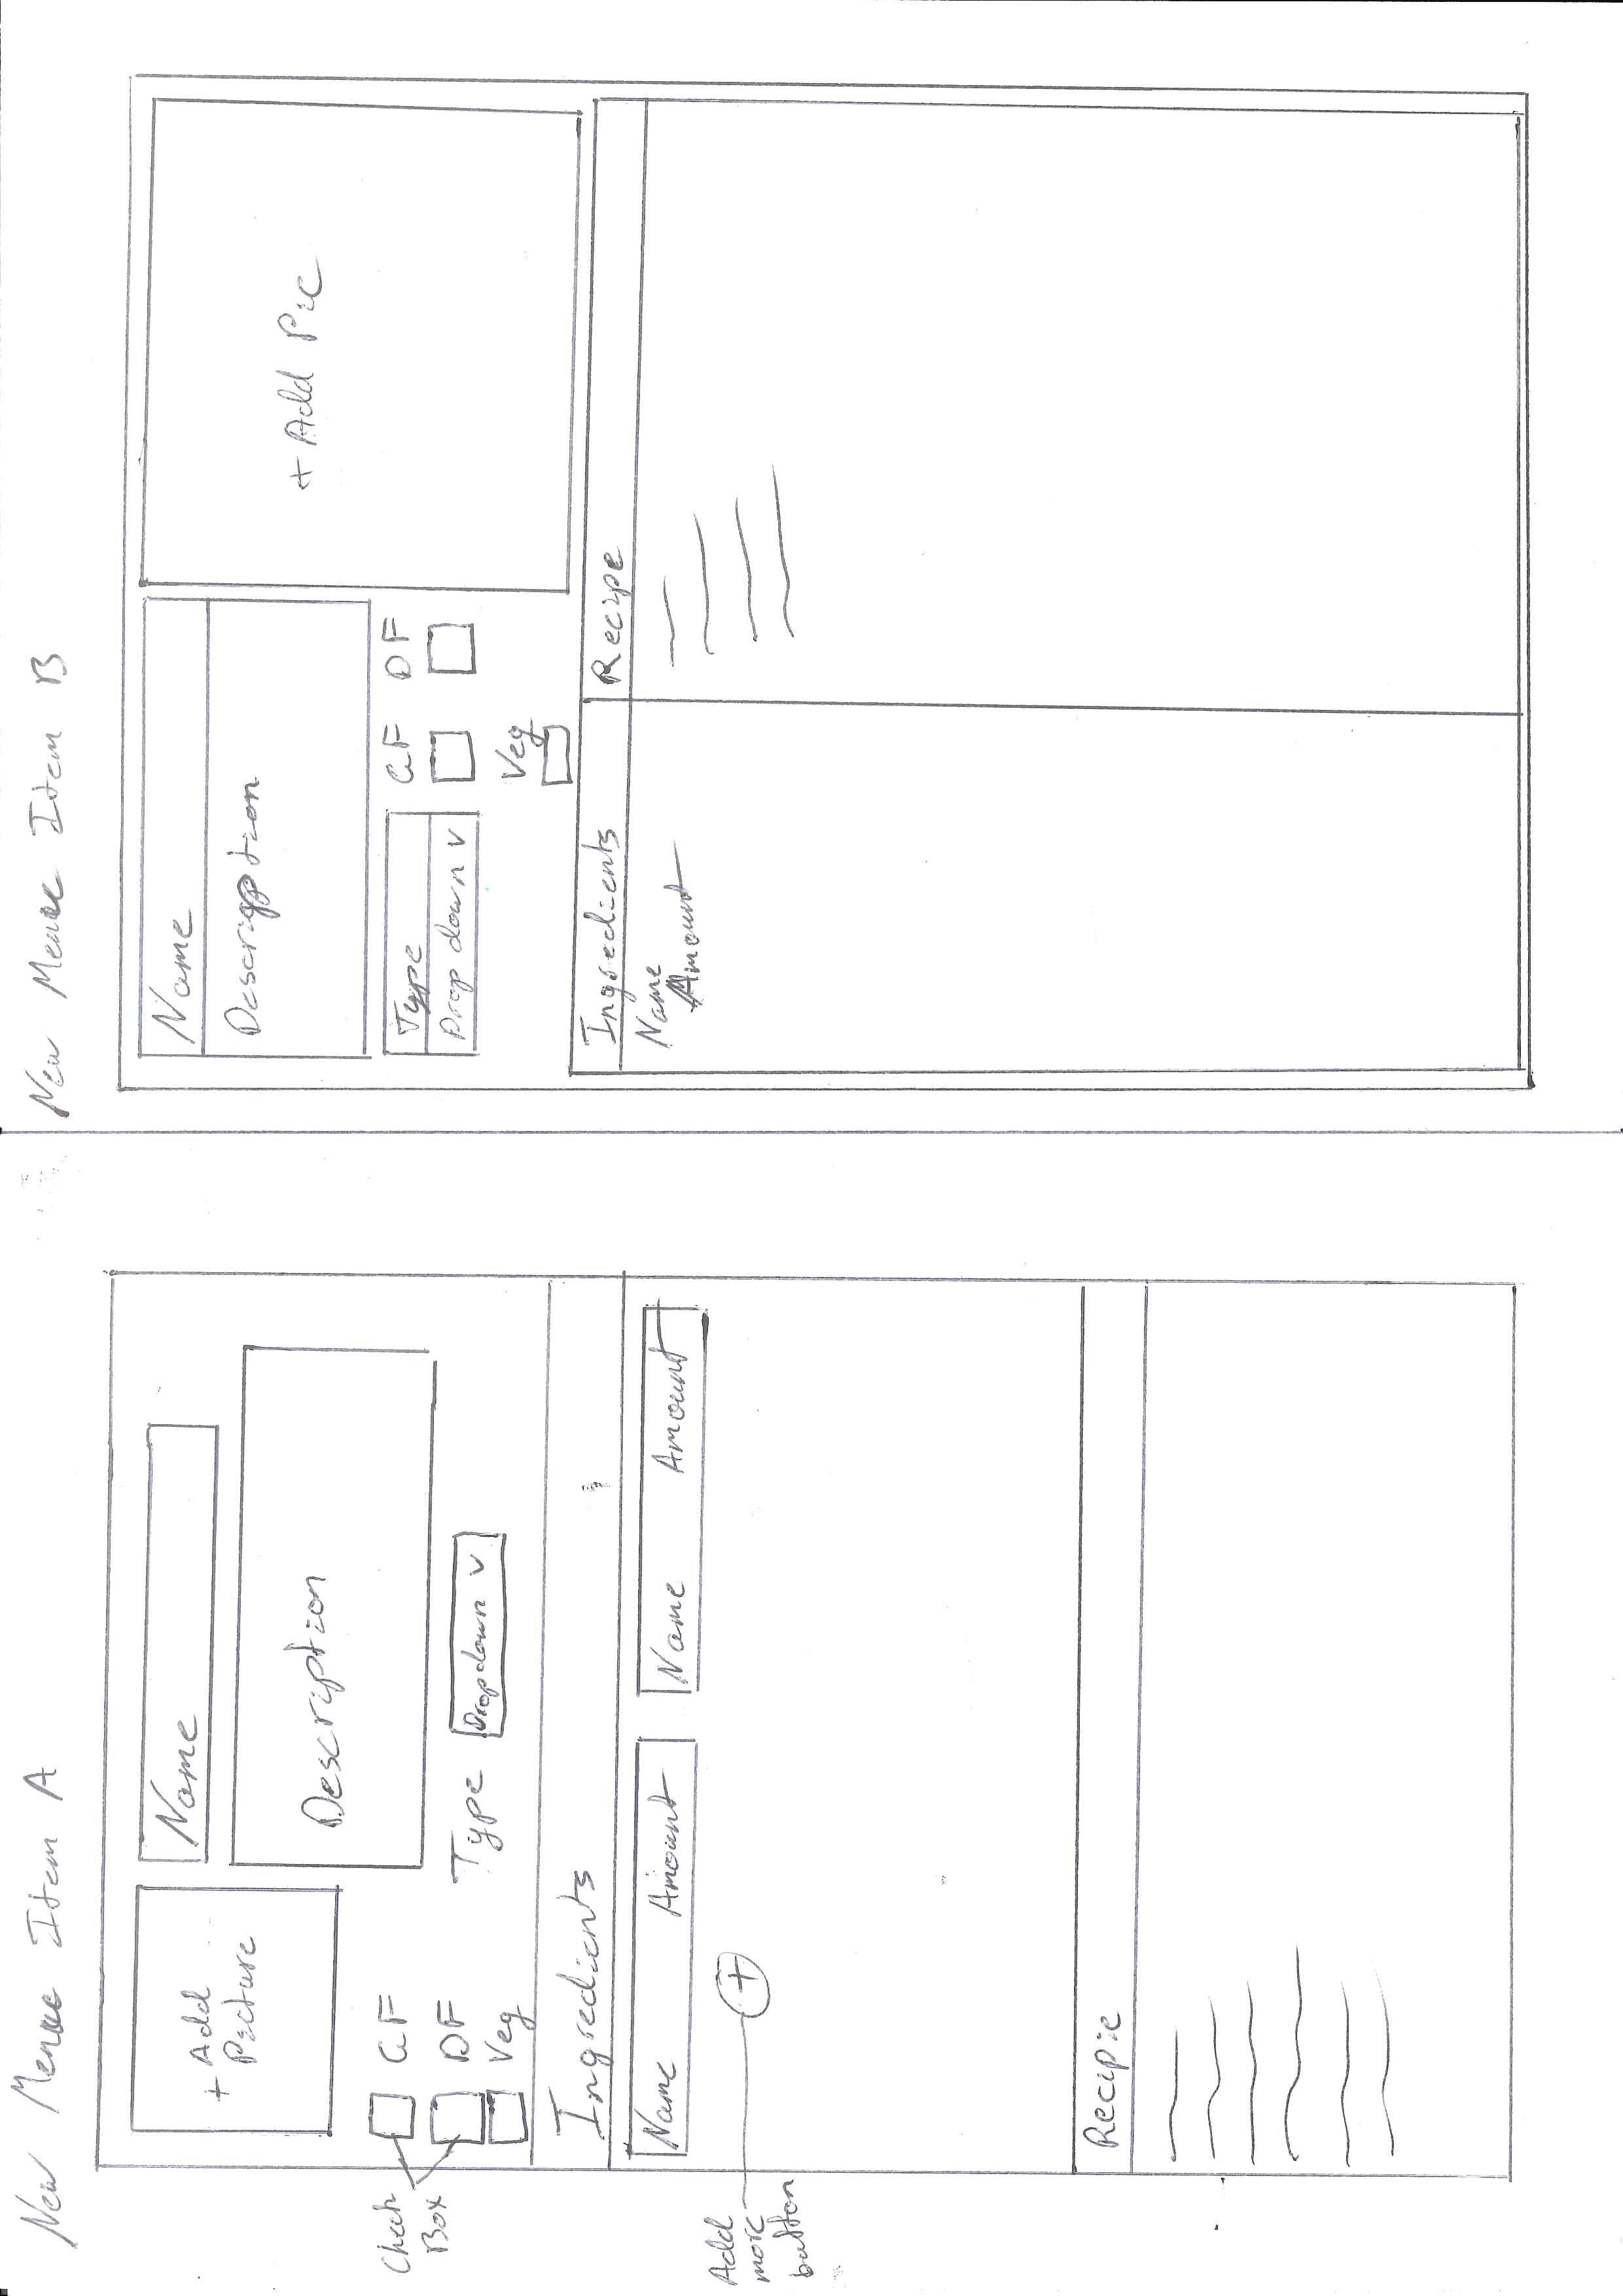 New Menue Item A
+ Add
Picture
Name
Description
Check
Box
GF
DF
Veg
Type
Dropdown v
Ingredients
Name Amount
Name Amount
Add
more
button
+
Recipie
New Menue Item B
Name
Description
+ Add Pic
Type
Drop down v
GF DF
Veg
Ingredients
Recipe
Name
Amount